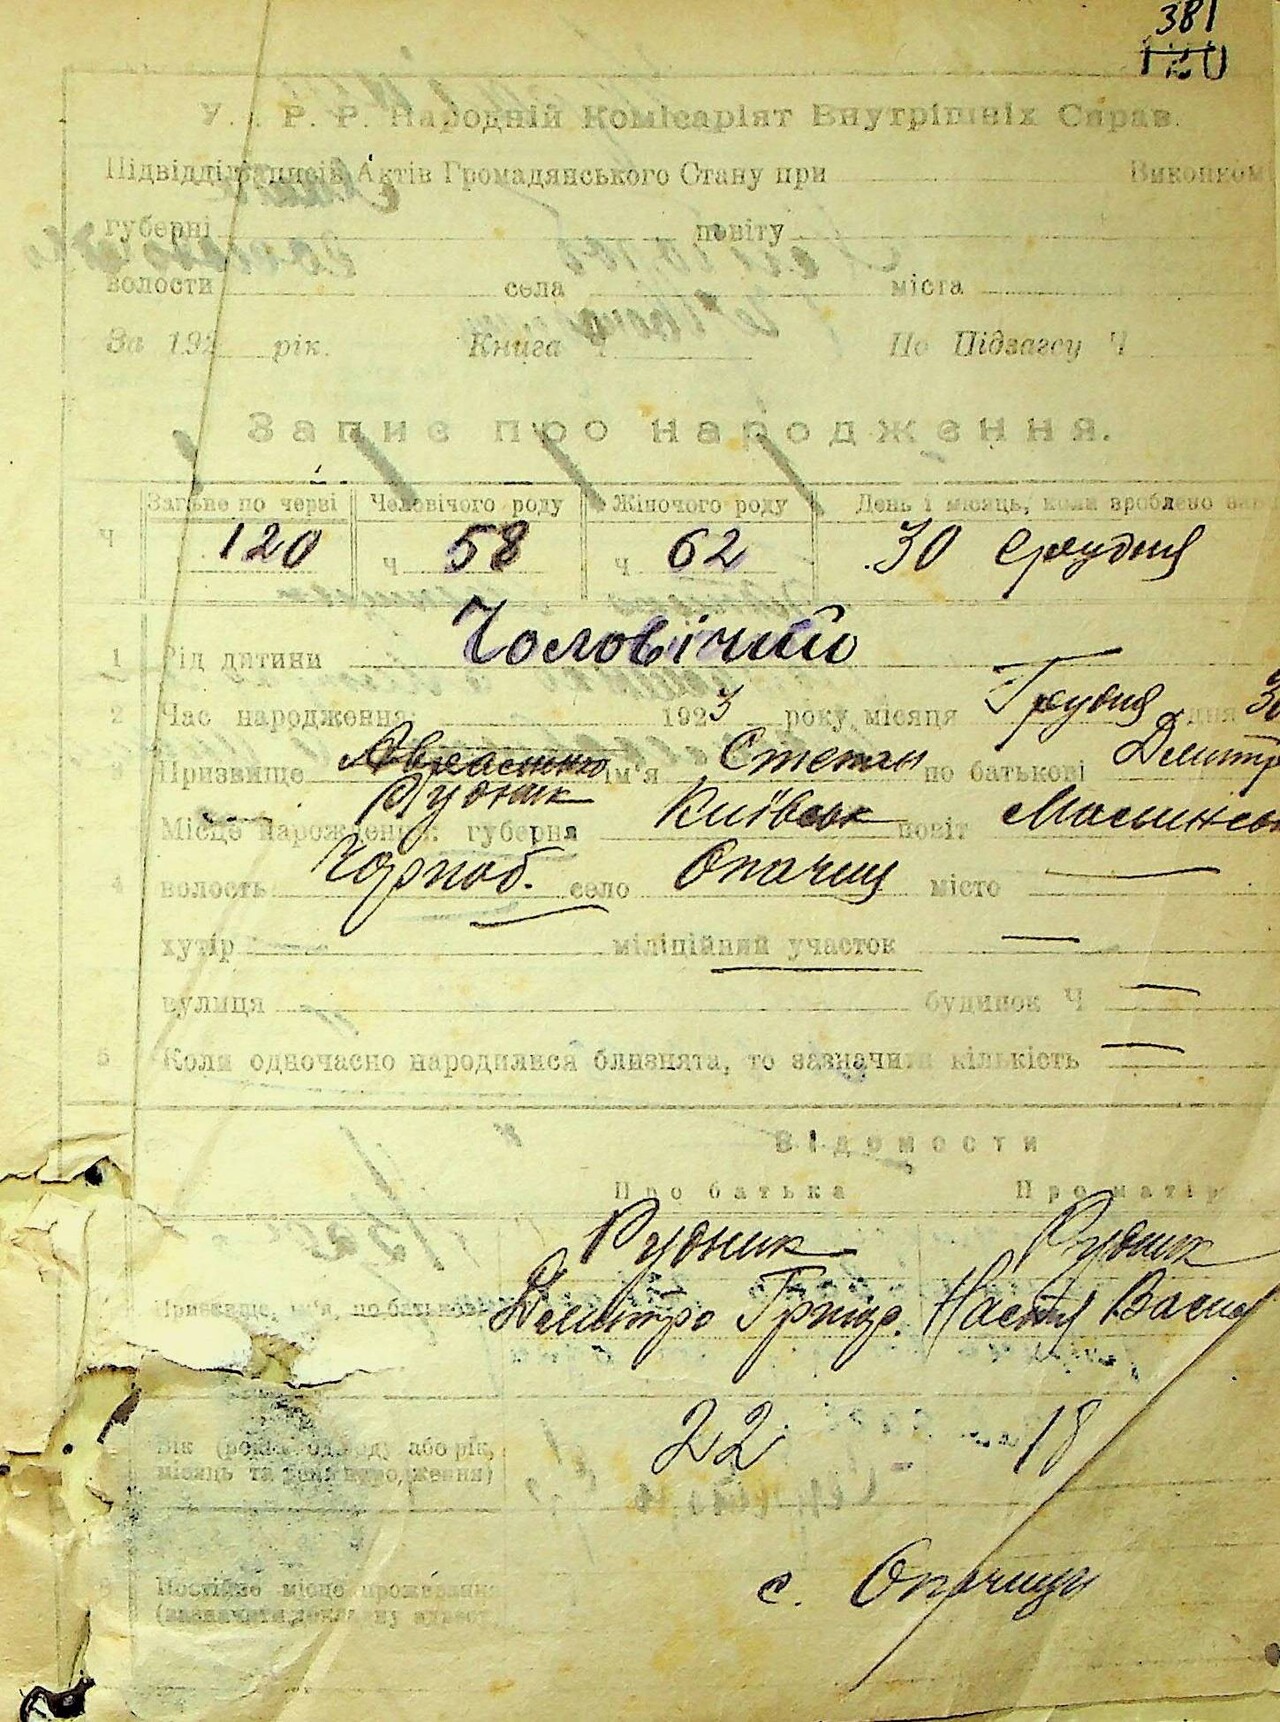 381
120
У. Р. Р. Народній Комісаріят Внутрішніх Справ.
Підвідділ Записів Актів Громадянського Стану при Виконком
губерні повіту
волости села міста
За 192 рік. Книга Ч По Підзагсу Ч
Запис про народження.
Загальне по черзі Человічого роду Жіночого роду День і місяць, коли зроблено
Ч 120 ч 58 ч 62 30 Грудня
1 Рід дитини Чоловічий
2 Час народження 1923 року, місяця Грудня дня 30
3 Призвище ім'я Степан по батькові Дмитр
Рудник
Місце народження: губерня Київськ повіт
4 волость Чорноб. село Опачиці місто —
хутір — міліційний участок —
вулиця — будинок Ч —
5 Коли одночасно народилися близнята, то зазначити кількість —
Відомости
Про батька Про матір
Рудник Рудник
Призвище, ім'я, по-батькові Дмитро Григор. Настя Васил
22 18
Вік (років від роду або рік,
місяць та день народження)
8 Постійне місце проживання с. Опачиці
(зазначити докладну адресу)